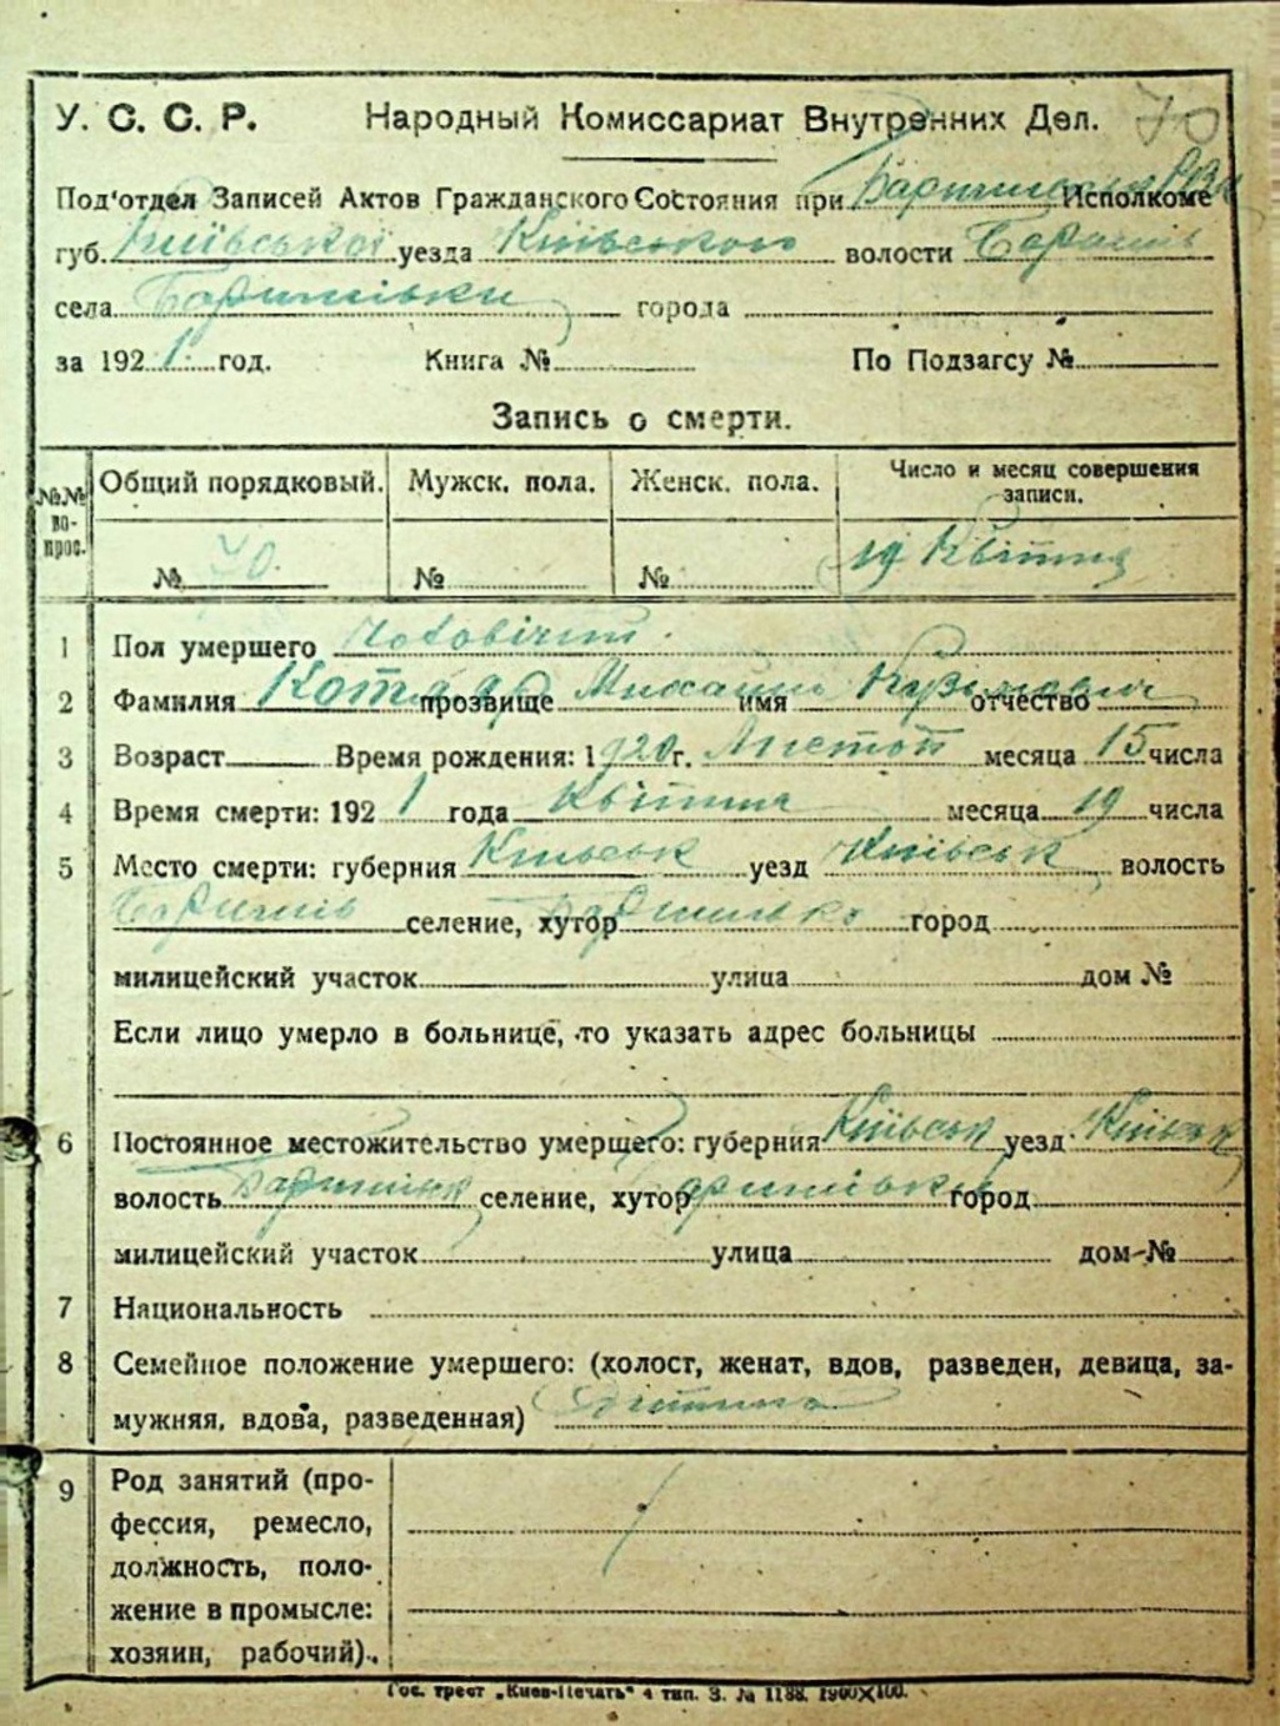 У. С. С. Р. Народный Комиссариат Внутренних Дел. 70
Под'отдел Записей Актов Гражданского Состояния при Исполкоме
губ. Київської уезда Київського волости Баришів
села Баришівки города
за 1921 год. Книга № По Подзагсу №
Запись о смерти.
№№ вопрос. Общий порядковый. Мужск. пола. Женск. пола. Число и месяц совершения записи.
№ 70. № № 19 Квітня
1 Пол умершего Чоловічий
2 Фамилия Котляр прозвище Михайло имя Кузьмович отчество
3 Возраст Время рождения: 1920 г. Листоп месяца 15 числа
4 Время смерти: 1921 года Квітня месяца 19 числа
5 Место смерти: губерния Київськ уезд Київськ волость
Баришів селение, хутор Баришівка город
милицейский участок улица дом №
Если лицо умерло в больнице, то указать адрес больницы
6 Постоянное местожительство умершего: губерния Київськ уезд Київськ
волость Баришівск селение, хутор Баришівки город
милицейский участок улица дом №
7 Национальность
8 Семейное положение умершего: (холост, женат, вдов, разведен, девица, за-
мужняя, вдова, разведенная) Дитина
9 Род занятий (про-
фессия, ремесло,
должность, поло-
жение в промысле:
хозяин, рабочий).
Гос. трест „Киев-Печать" 4 тип. З. № 1188. 1900×100.